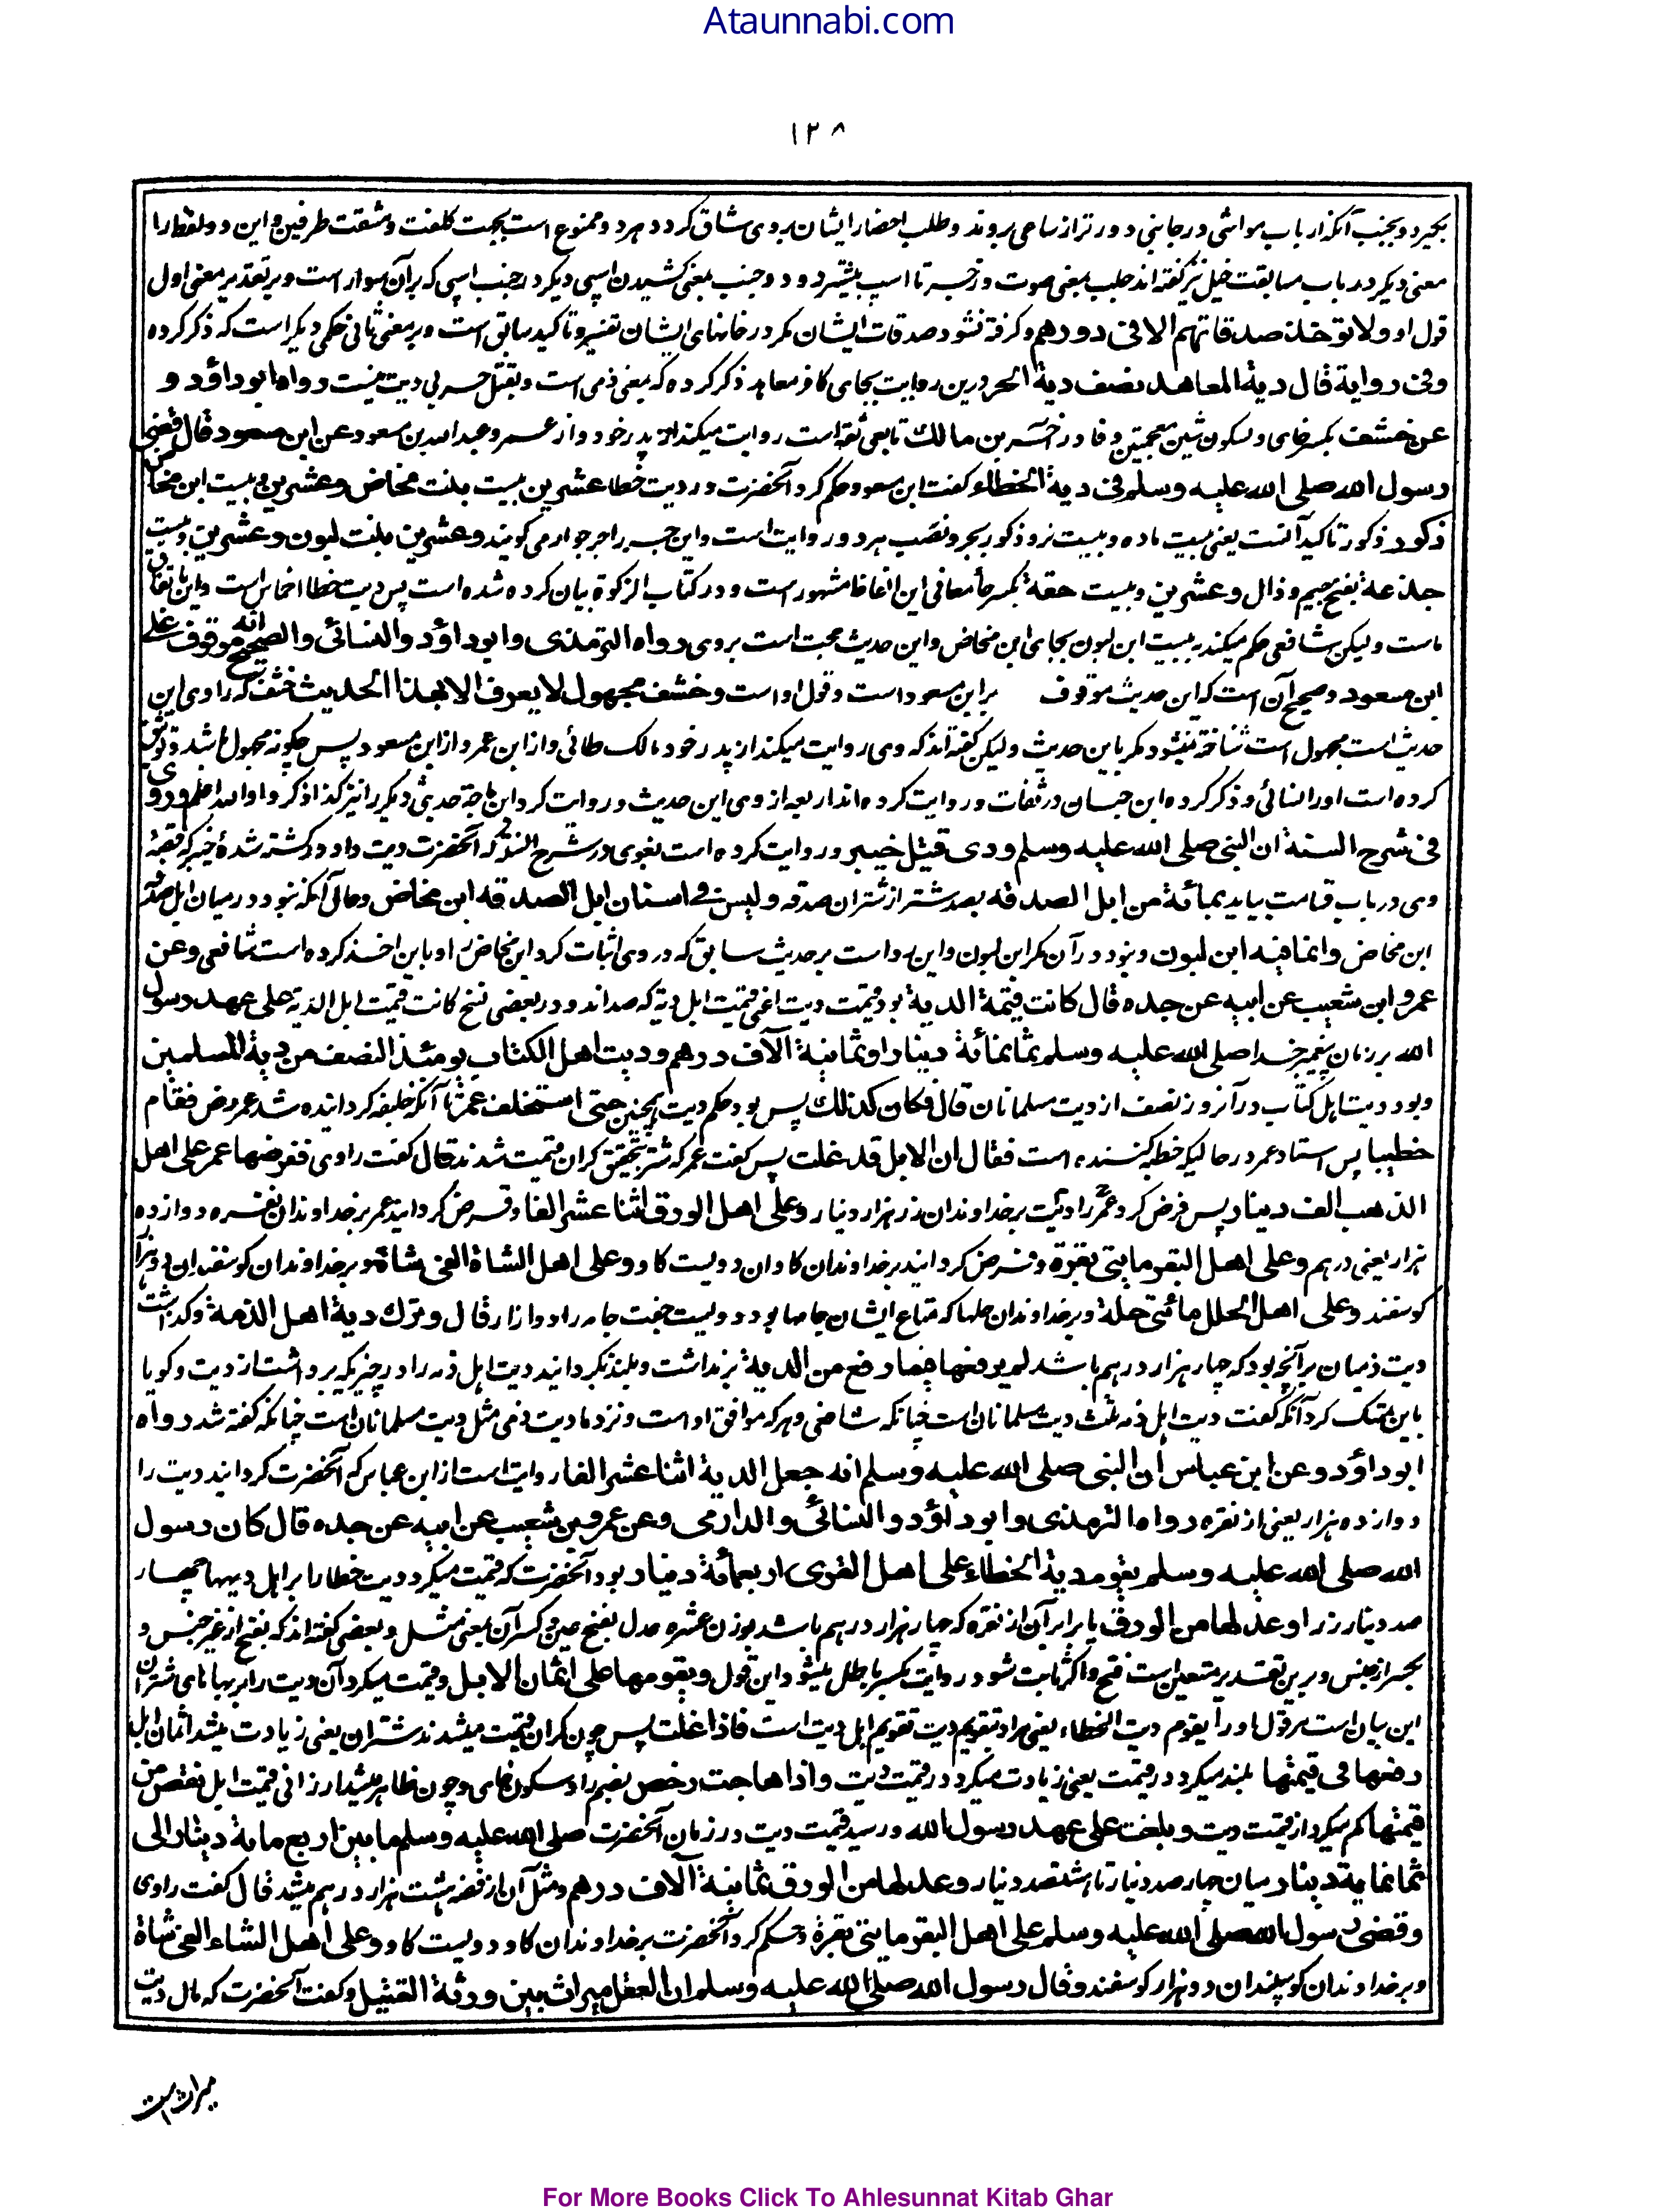 Ataunnabi.com
١٢٨
بگیرد و بجنب آنکه ارباب مواشی در جانبی دورتر از ساعی بروند و طلب احضار ایشان بروی شاق گردد هر دو ممنوع است بجهت کلفت و مشقت طرفین و این دو لفظ را
معنی دیگر در باب مسابقت خیل نیز گفته اند جلب بمعنی صوت و زجر تا اسپ بیشتر دود و جنب بمعنی کشیدن اسپی دیگر در جنب اسپی که برآن سوار است و بر تقدیر معنی اول
قول او ولا توخذ صدقاتهم الا فی دورهم و گرفته نشود صدقات ایشان مگر در خانهای ایشان تفسیر و تاکید سابق است و بر معنی ثانی حکمی دیگر است که ذکر کرده
وفی روایة قال دیة المعاهد نصف دیة الحر درین روایت بجای کافر معاهد ذکر کرده که بمعنی ذمی است و بقتل حربی دیت نیست رواه ابوداؤد و
عن خشف بکسر خای و سکون شین معجمتین و فا در آخر بن مالك تابعی ثقه است روایت میکند از پدر خود و از عمر و عبد الله بن مسعود عن ابن مسعود قال قضی
رسول الله صلی الله علیه وسلم فی دیة الخطاء گفت ابن مسعود حکم کرد آنحضرت در دیت خطا عشرین بیست بنت مخاض وعشرین و بیست ابن مخاض
ذکور ذکور تاکید آنست یعنی بیست ماده و بیست نر و ذکور بجر و نصب هر دو روایت است و این جر را جر جوار می گویند وعشرین بنت لبون وعشرین و بیست
جذعة بفتح جیم و ذال وعشرین و بیست حقة بکسر حا معانی این الفاظ مشهور است و در کتاب الزکوة بیان کرده شده است پس دیت خطا اخماس است و این باتفاق
ماست و لیکن شافعی حکم میکند به بیست ابن لبون بجای ابن مخاض و این حدیث حجت است بر وی رواه الترمذی وابوداؤد والنسائی والصحیح انه موقوف علی
ابن مسعود و صحیح آن است که این حدیث موقوف بر ابن مسعود است و قول او است وخشف مجهول لا یعرف الا بهذا الحدیث خشف که راوی این
حدیث است مجهول است شناخته نمیشود مگر باین حدیث و لیکن گفته اند که وی روایت میکند از پدر خود مالک طائی و از ابن عمر و از ابن مسعود پس چگونه مجهول باشد و توثیق
کرده است او را نسائی و ذکر کرده ابن حبان در ثقات و روایت کرده اند اربعه از وی این حدیث و روایت کرد ابن ماجه حدیثی دیگر را نیز کذا ذکروا والله اعلم وروی
فی شرح السنة ان النبی صلی الله علیه وسلم ودی قتیل خیبر و روایت کرده است بغوی در شرح السنة که آنحضرت دیت داد کشته شدهٔ خیبر که قصهٔ
وی در باب قسامت بیاید بمائة من ابل الصدقة بصد شتر از شتران صدقه ولیس فی اسنان ابل الصدقة ابن مخاض و حال آنکه نبود در میان ابل صدقه
ابن مخاض وانما فیه ابن لبون و نبود در آن مگر ابن لبون و این رد است بر حدیث سابق که در وی اثبات کرد ابن مخاض را و باین اخذ کرده است شافعی وعن
عمرو ابن شعیب عن ابیه عن جده قال کانت قیمة الدیة بود قیمت دیت اعنی قیمت ابل دیه که صد اند و در بعضی نسخ کانت قیمت ابل الدیة علی عهد رسول
الله بر زمان پیغمبر خدا صلی الله علیه وسلم ثمانمائة دینار او ثمانیة آلاف درهم ودیت اهل الکتاب یومئذ النصف من دیة المسلمین
و بود دیت اهل کتاب در آنروز نصف از دیت مسلمانان قال فکان کذلك پس بود حکم دیت همچنین حتی استخلف عمر تا آنکه خلیفه گردانیده شد عمر رض فقام
خطیبا پس استاد عمر در حالیکه خطبه کننده است فقال ان الابل قد غلت پس گفت عمر که شتر بتحقیق گران قیمت شدند قال گفت راوی ففرضها عمر علی اهل
الذهب الف دینار پس فرض کرد عمر دیت را بر خداوندان زر هزار دینار وعلی اهل الورق اثنا عشر الفا و فرض گردانید عمر بر خداوندان نقره دوازده
هزار یعنی درهم وعلی اهل البقر مایتی بقرة و فرض گردانید بر خداوندان گاوان دویست گاو وعلی اهل الشاة الفی شاة و بر خداوندان گوسفندان دو هزار
گوسفند وعلی اهل الحلل مائتی حلة و بر خداوندان حلها که متاع ایشان جامها بود دویست جفت جامه ردا و ازار قال وترك دیة اهل الذمة و گذاشت
دیت ذمیان برآنچه بود که چهار هزار درهم باشد لم یرفعها فیما رفع من الدیة برنداشت و بلند نگردانید دیت اهل ذمه را در چیزیکه برداشت از دیت و گویا
باین تمسک کرد آنکه گفت دیت اهل ذمه ثلث دیت مسلمانان است چنانکه شافعی و هر که موافق او است و نزد ما دیت ذمی مثل دیت مسلمانان است چنانکه گفته شد رواه
ابوداؤد وعن ابن عباس ان النبی صلی الله علیه وسلم انه جعل الدیة اثنا عشر الفا روایت است از ابن عباس که آنحضرت گردانید دیت را
دوازده هزار یعنی از نقره رواه الترمذی وابوداؤد والنسائی والدارمی وعن عمرو بن شعیب عن ابیه عن جده قال کان رسول
الله صلی الله علیه وسلم یقوم دیة الخطاء علی اهل القری اربعمائة دینار بود آنحضرت که قیمت میکرد دیت خطا را بر اهل دیهها چهار
صد دینار زر او عدلها من الورق یا برابر آن از نقره که چهار هزار درهم باشد بوزن عشره عدل بفتح عین و کسر آن بمعنی مثل و بعضی گفته اند که بفتح از غیر جنس و
بکسر از جنس و برین تقدیر متعین است فتح و اگر ثابت شود روایت بکسر باطل میشود این قول ویقومها علی اثمان الابل و قیمت میکرد آن دیت را بر بهاهای شتران
این بیان است مر قول او را یقوم دیت الخطاء یعنی مراد بتقویم دیت تقویم ابل دیت است فاذا غلت پس چون گران قیمت میشدند شتران یعنی زیادت میشد اثمان ابل
رفعها فی قیمتها بلند میکرد در قیمت یعنی زیادت میکرد در قیمت دیت واذا هاجت رخص بضم را و سکون خای و چون ظاهر میشد ارزانی قیمت ابل نقص من
قیمتها کم میکرد از قیمت دیت وبلغت علی عهد رسول الله و رسید قیمت دیت در زمان آنحضرت صلی الله علیه وسلم ما بین اربع مایة دینار الی
ثمانمایة دینار میان چهار صد دینار تا هشتصد دینار وعدلها من الورق ثمانیة آلاف درهم و مثل آن از فضه هشت هزار درهم میشد قال گفت راوی
وقضی رسول الله صلی الله علیه وسلم علی اهل البقر مایتی بقرة و حکم کرد آنحضرت بر خداوندان گاو دویست گاو وعلی اهل الشاء الفی شاة
و بر خداوندان گوسپندان دو هزار گوسفند وقال رسول الله صلی الله علیه وسلم ان العقل میراث بین ورثة القتیل و گفت آنحضرت که مال دیت
میراث است
For More Books Click To Ahlesunnat Kitab Ghar